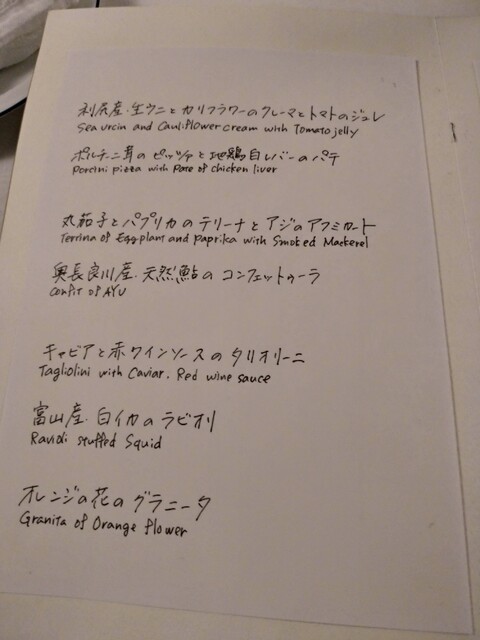 利尻産・生ウニとカリフラワーのクレーマとトマトのジュレ
Sea urcin and Cauliflower cream with Tomato jelly
ポルチーニ茸のピッツァと地鶏白レバーのパテ
Porcini pizza with Pate of chicken liver
丸茄子とパプリカのテリーナとアジのアフミカート
Terrina of Eggplant and Paprika with Smoked Mackerel
奥長良川産・天然鮎のコンフェットゥーラ
confit of AYU
キャビアと赤ワインソースのタリオリーニ
Tagliolini with Caviar. Red wine sauce
富山産・白イカのラビオリ
Ravioli stuffed Squid
オレンジの花のグラニータ
Granita of Orange flower